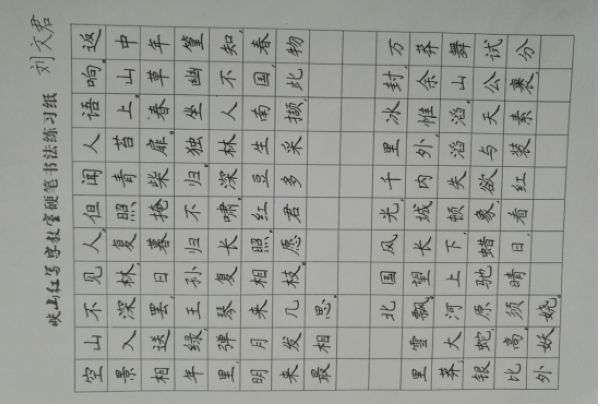 映山红写字教室硬笔书法练习纸 刘文君
空山不见人,但闻人语响。返
景入深林,复照青苔上。山中
相送罢,日暮掩柴扉。春草年
年绿,王孙归不归。独坐幽篁
里,弹琴复长啸。深林人不知,
明月来相照。红豆生南国,春
来发几枝。愿君多采撷,此物
最相思。
北国风光,千里冰封,万
里雪飘。望长城内外,惟余莽
莽,大河上下,顿失滔滔。山舞
银蛇,原驰蜡象,欲与天公试
比高。须晴日,看红装素裹,分
外妖娆。